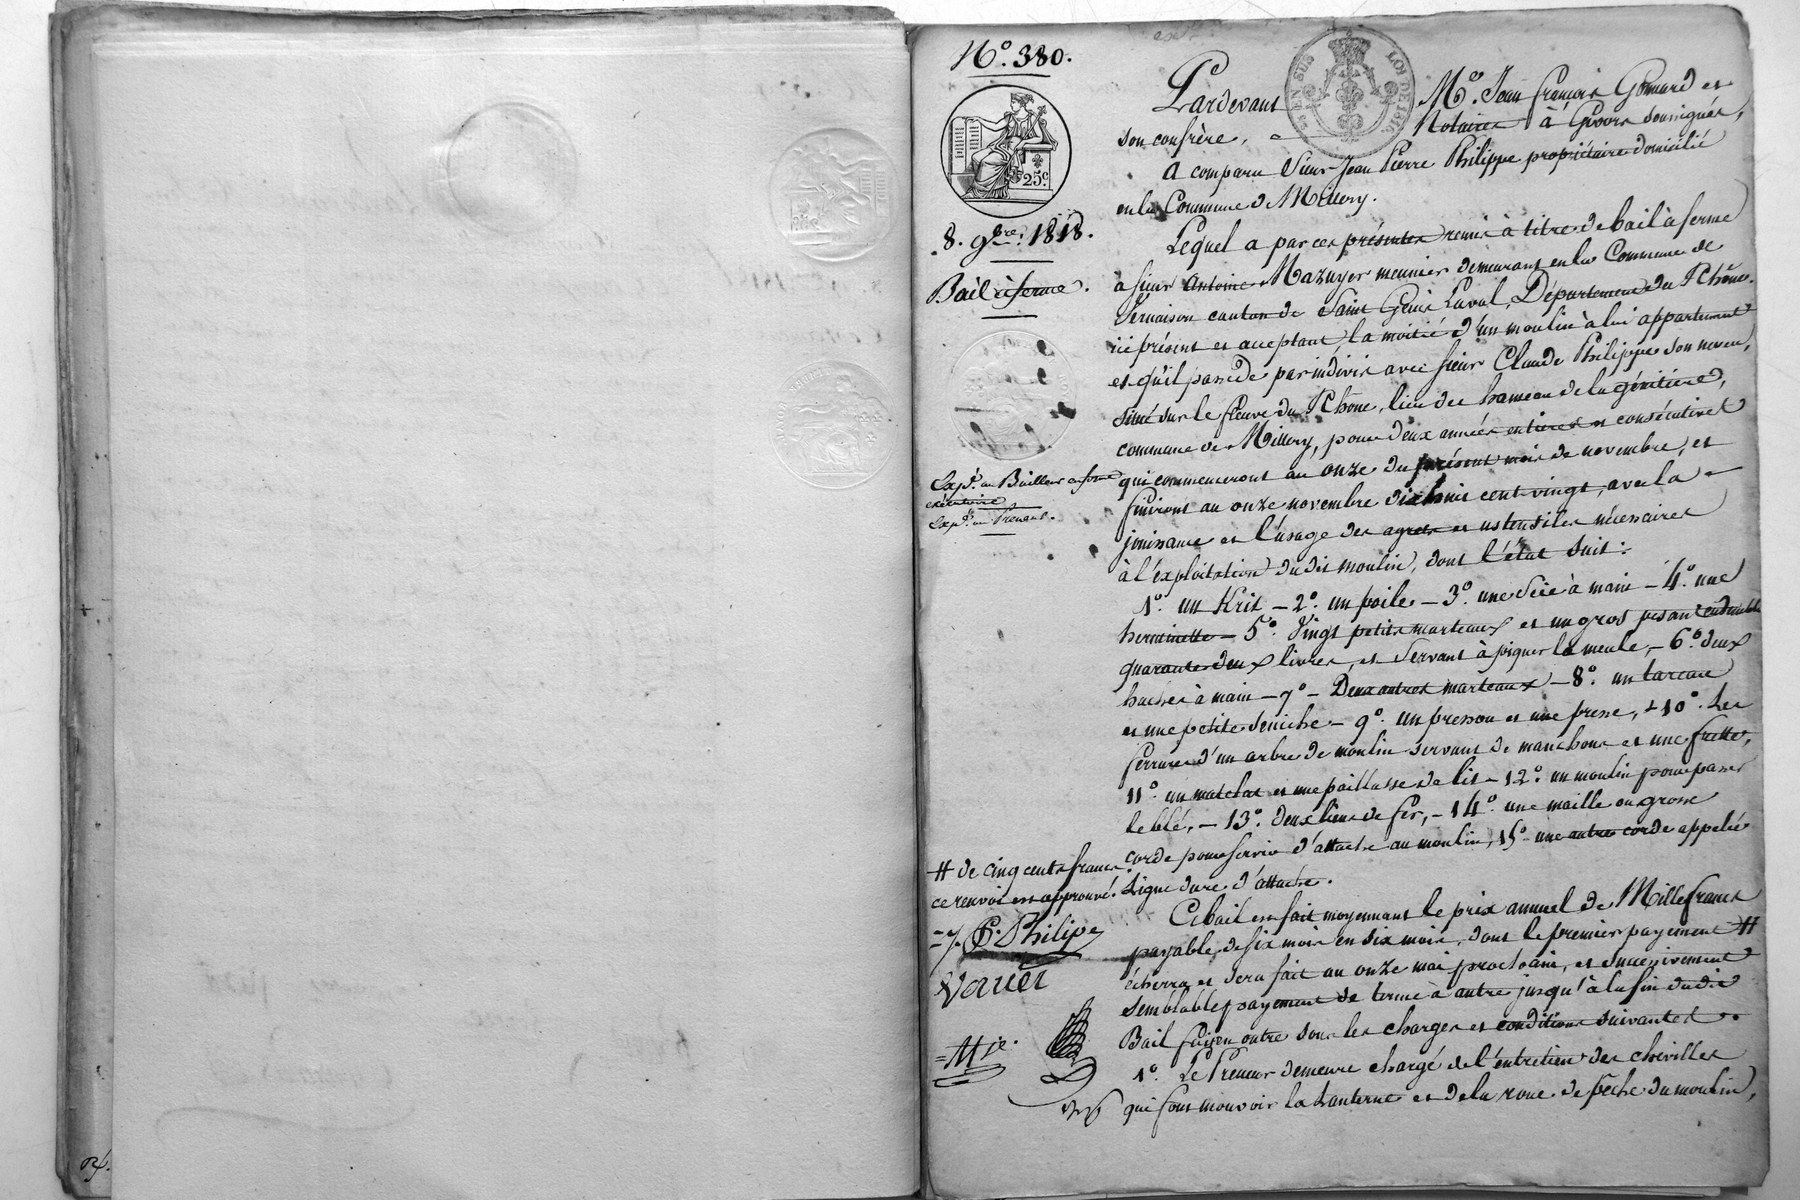 N.º 380.
25.c
8. 9.bre 1818.
Bail à ferme.
Expé. au Bailleur en forme
exécutoire
Expé. au Preneur.
EN SUS LOI DE 1816
Pardevant M.e Jean françois Gonnard et
son confrère, Notaires à Givors soussignés,
A comparu Sieur Jean Pierre Philippe propriétaire domicilié
en la Commune de Millery.
Lequel a par ces présentes remis à titre de bail à ferme
à sieur Antoine Mazuyer meunier demeurant en la Commune de
Vernaison canton de Saint Genis Laval, Département du Rhône.
ici présent et acceptant, la moitié d'un moulin à lui appartenant
et qu'il possède par indivis avec sieur Claude Philippe son neveu,
situé sur le fleuve du Rhône, lieu dit hameau de la
commune de Millery, pour deux années entières et consécutives
qui commenceront au onze du présent mois de novembre, et
finiront au onze novembre dix huit cent vingt, avec la
jouissance et l'usage des agrets et ustensiles nécessaires
à l'exploitation dudit moulin, dont l'état suit :
1.º un Krik – 2.º un poile – 3.º une Scie à main – 4.º une
herminette – 5.º Vingt petits marteaux et un gros pesant ensemble
quarante deux livres, et servant à piquer la meule, – 6.º deux
haches à main – 7.º – Deux autres marteaux – 8.º un tareau
et une petite – 9.º un pressou et une presse, – 10.º Les
ferrures d'un arbre de moulin servant de manchons et une frette,
11.º un matelat et une paillasse de lit – 12.º un moulin pour passer
le blé, – 13.º deux liens de fer, – 14.º une maille ou grosse
corde pour servir d'attache au moulin, 15.º une autre corde appelée
Ligne dure d'attache.
# de cinq cents francs
ce renvoi est approuvé.
= J. P. Philipe
M.ie
Ce bail est fait moyennant le prix annuel de Mille francs
payable, de six mois en six mois, dont le premier payement #
écherra et sera fait au onze mai prochain, et successivement
semblable payement de terme à autre jusqu'à la fin dudit
Bail fait en outre sous les charges et conditions suivantes.
1.º Le Preneur demeure chargé de l'entretien des chevilles
qui font mouvoir la Lanterne et de la roue de du moulin,